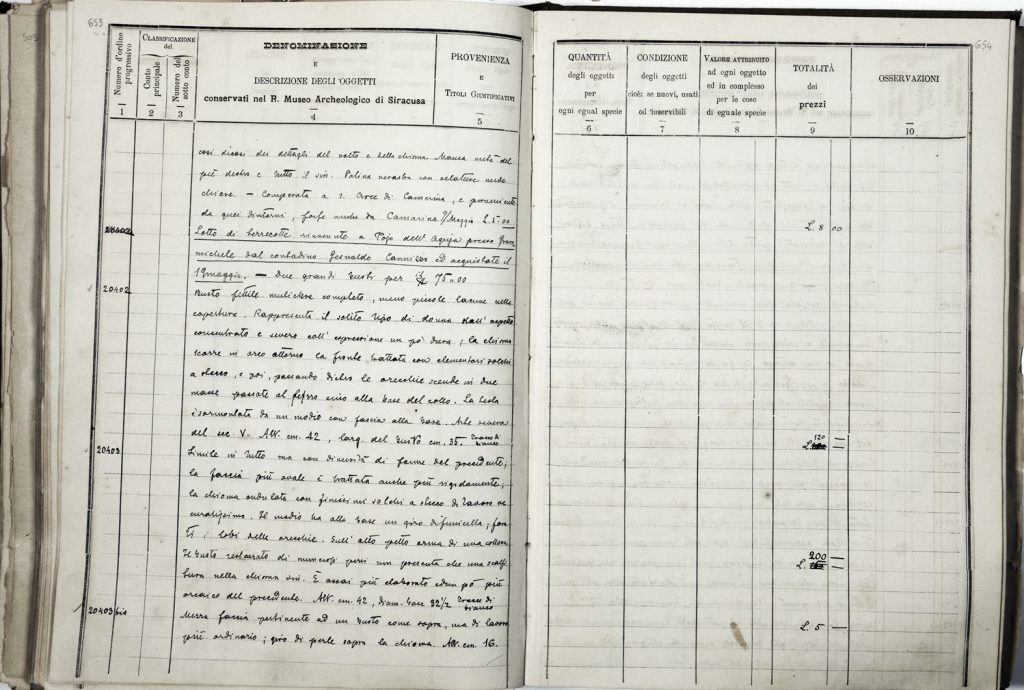 653
505
Numero d'ordine progressivo
1
CLASSIFICAZIONE del
Conto principale
2
Numero del sotto conto
3
DENOMINAZIONE
E
DESCRIZIONE DEGLI OGGETTI
conservati nel R. Museo Archeologico di Siracusa
4
PROVENIENZA
E
TITOLI GIUSTIFICATIVI
5
così dicasi dei dettagli del volto e della chioma Manca metà del
piè destro e tutto il sin. Patina nerastra con velature verde
chiare. — Comperata a S. Croce di Camerina, e proveniente
da quei dintorni, forse anche da Camarina Maggio L. 5.00
Lotto di terrecotte rinvenute a Pojo dell' Aquja presso Gram
michele dal contadino Gesualdo Cannizzo ed acquistate il
19 maggio. — Due grandi busti per 75,00
20402
Busto fittile muliebre completo, meno piccole lacune nella
capertura. Rappresenta il solito tipo di donna dall' aspetto
concentrato e severo coll' espressione un po' dura; la chioma
scorre in arco attorno la fronte trattata con elementari solchi
a stecco, e poi, passando dietro le orecchie scende in due
masse passate al fino alla base del collo. La testa
è sormontata da un modio con fascia alla base. Arte severa
del sec. V. Alt. cm. 42, larg. del busto cm. 35. Tracce di bianco
20403
Simile in tutto ma con diversità di forme del precedente;
la faccia più ovale è trattata anche più rigidamente,
la chioma ondulata con finissimi solchi a stecco di lavoro ac
curatissimo. Il modio ha alla base un giro di funicella; fora
ti i lobi delle orecchie. Sull' alto petto orma di una collana
Il busto restaurato di numerosi pezzi non presenta che una scalfi
tura nella chioma sin. È assai più elaborato ed un pò più
arcaico del precedente. Alt. cm. 42, diam. base 32 1/2 Tracce di bianco
20403/bis
Mezza faccia pertinente ad un busto come sopra, ma di lavoro
più ordinario; giro di perle sopra la chioma. Alt. cm. 16.
654
QUANTITÀ
degli oggetti
per
ogni egual specie
6
CONDIZIONE
degli oggetti
cioè: se nuovi, usati
od inservibili
7
VALORE ATTRIBUITO
ad ogni oggetto
ed in complesso
per le cose
di eguale specie
8
TOTALITÀ
dei
prezzi
9
OSSERVAZIONI
10
L. 8 00
120 —
L. —
200 —
L. —
L. 5 —